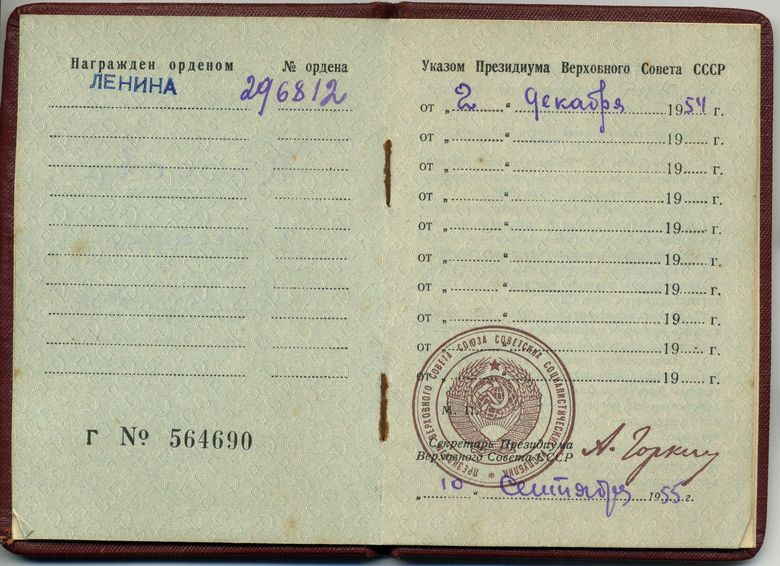 Награжден орденом № ордена
ЛЕНИНА 296812
Г № 564690
Указом Президиума Верховного Совета СССР
от „ 2 “ декабря 1954 г.
от „ “ 19 г.
от „ “ 19 г.
от „ “ 19 г.
от „ “ 19 г.
от „ “ 19 г.
от „ “ 19 г.
от „ “ 19 г.
от „ “ 19 г.
от „ “ 19 г.
ПРЕЗИДИУМ ВЕРХОВНОГО СОВЕТА СОЮЗА СОВЕТСКИХ СОЦИАЛИСТИЧЕСКИХ РЕСПУБЛИК
М. П.
Секретарь Президиума
Верховного Совета СССР А. Горкин
„ 10 “ Сентября 1955 г.